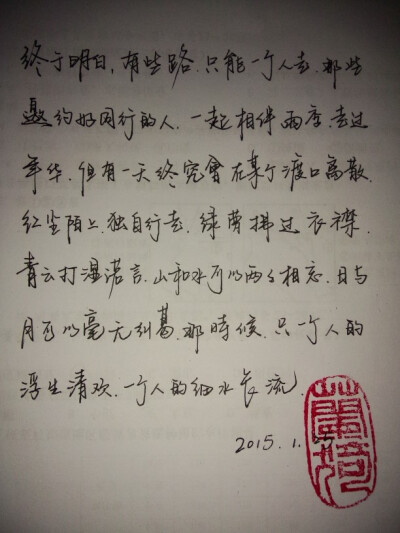 终于明白，有些路．只能一个人走．那些
邀约好同行的人．一起相伴雨季．走过
年华．但有一天终究會在某个渡口离散．
红尘陌上．独自行走．绿萝拂过衣襟．
青云打湿诺言．山和水可以两两相忘．日与
月可以毫无纠葛．那時候．只一个人的
浮生清欢．一个人的细水长流．
2015.1.25